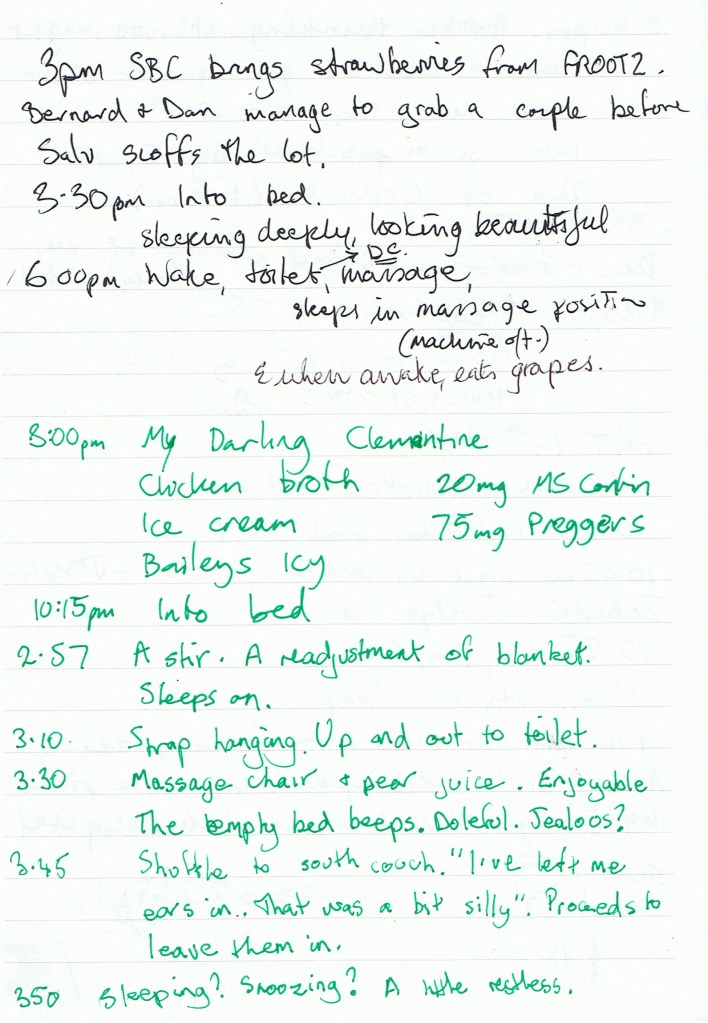 3pm SBC brings strawberries from FROOTZ.
Bernard & Dan manage to grab a couple before
Salv scoffs the lot.
3.30pm Into bed.
sleeping deeply, looking beautiful
DC.
6 00pm Wake, toilet, massage,
sleeps in massage position
(machine off.)
& when awake, eats grapes.
8:00pm My Darling Clementine
Chicken broth 20mg MS Contin
Ice cream 75mg Preggers
Baileys Icy
10:15pm Into bed
2.57 A stir. A readjustment of blanket.
Sleeps on.
3.10. Strap hanging. Up and out to toilet.
3.30 Massage chair & pear juice. Enjoyable
The empty bed beeps. Doleful. Jealoos?
3.45 Shuffle to south couch. "I've left me
ears in.. That was a bit silly". Proceeds to
leave them in.
350 Sleeping? Snoozing? A little restless.